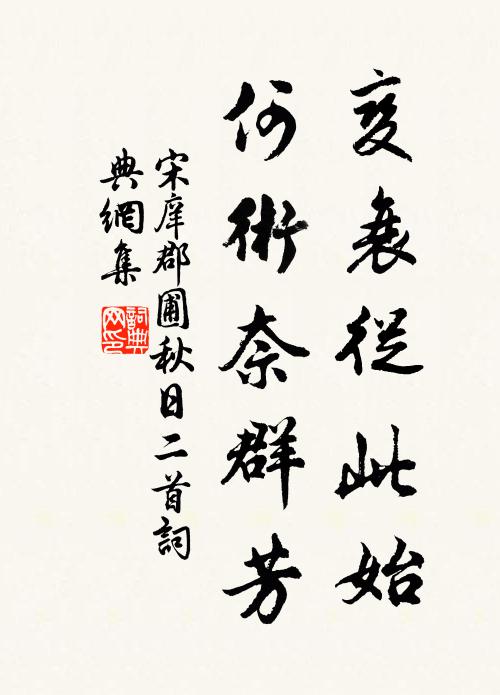 变衰從此始
何術奈群芳
宋庠郡圃秋日二首詞
典網集
詞典
网印